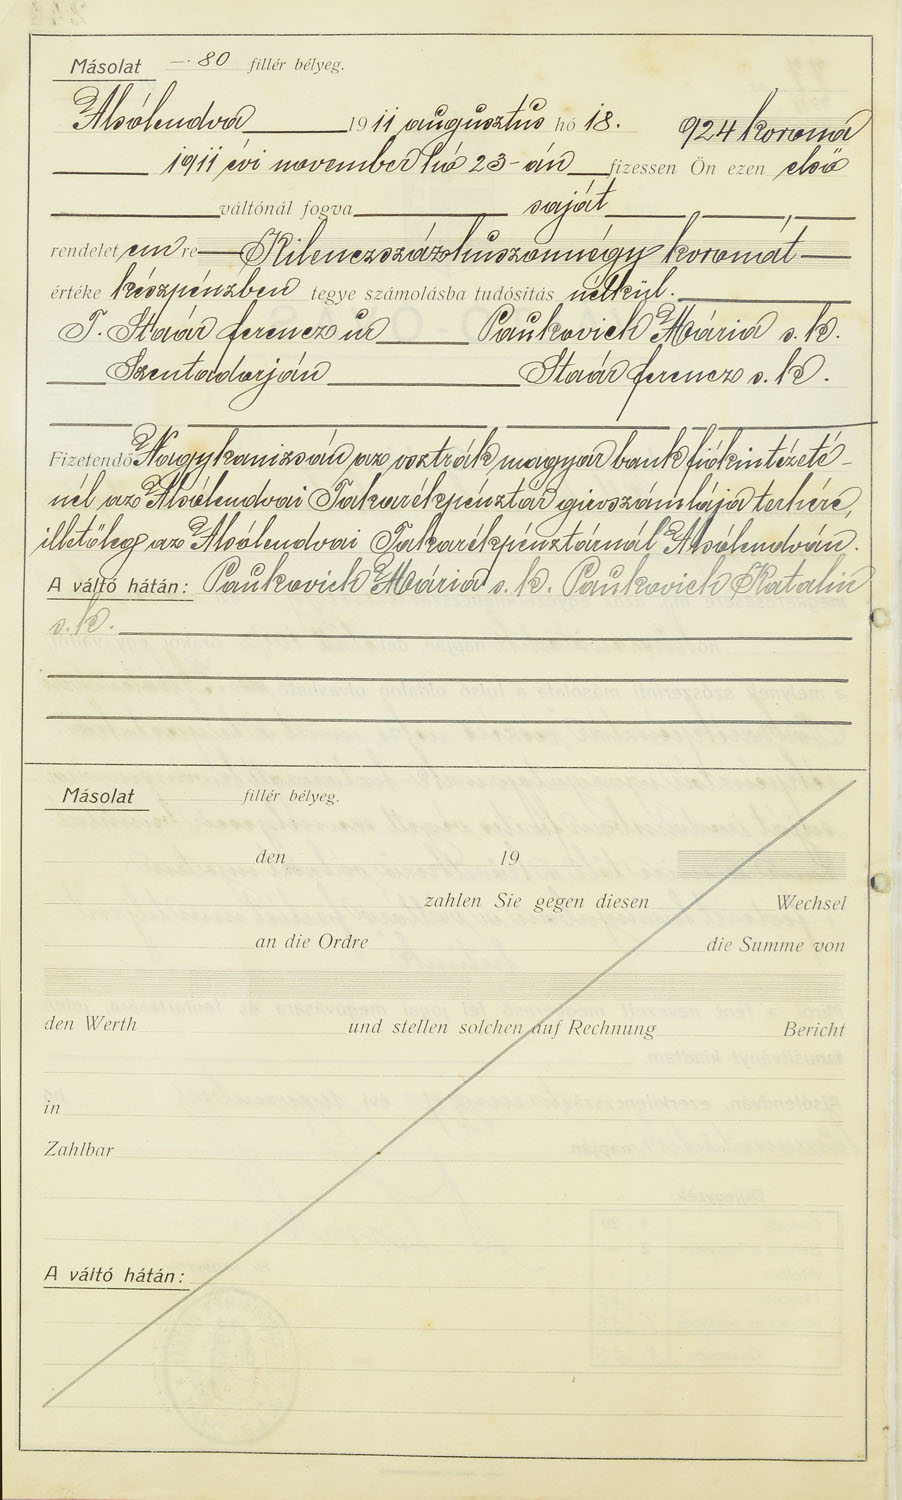 Másolat —.80 fillér bélyeg.
Alsólendva 1911 augusztus hó 18. 924 korona
1911 évi november hó 23-án fizessen Ön ezen első
váltónál fogva saját
rendeletemre Kilenczszázhuszonnégy koronát
értéke készpénzben tegye számolásba tudósítás nélkül.
T. Staár ferencz úr Paukovich Mária s. k.
Szentadorján Staár ferencz s. k.
Fizetendő Nagykanizsán az osztrák magyar bank fiókintézeté-
nél az Alsólendvai Takarékpénztár giroszámlája terhére,
illetőleg az Alsólendvai Takarékpénztárnál Alsólendván.
A váltó hátán: Paukovich Mária s. k. Paukovich Katalin
s. k.
Másolat fillér bélyeg.
den 19
zahlen Sie gegen diesen Wechsel
an die Ordre die Summe von
den Werth und stellen solchen auf Rechnung Bericht
in
Zahlbar
A váltó hátán: